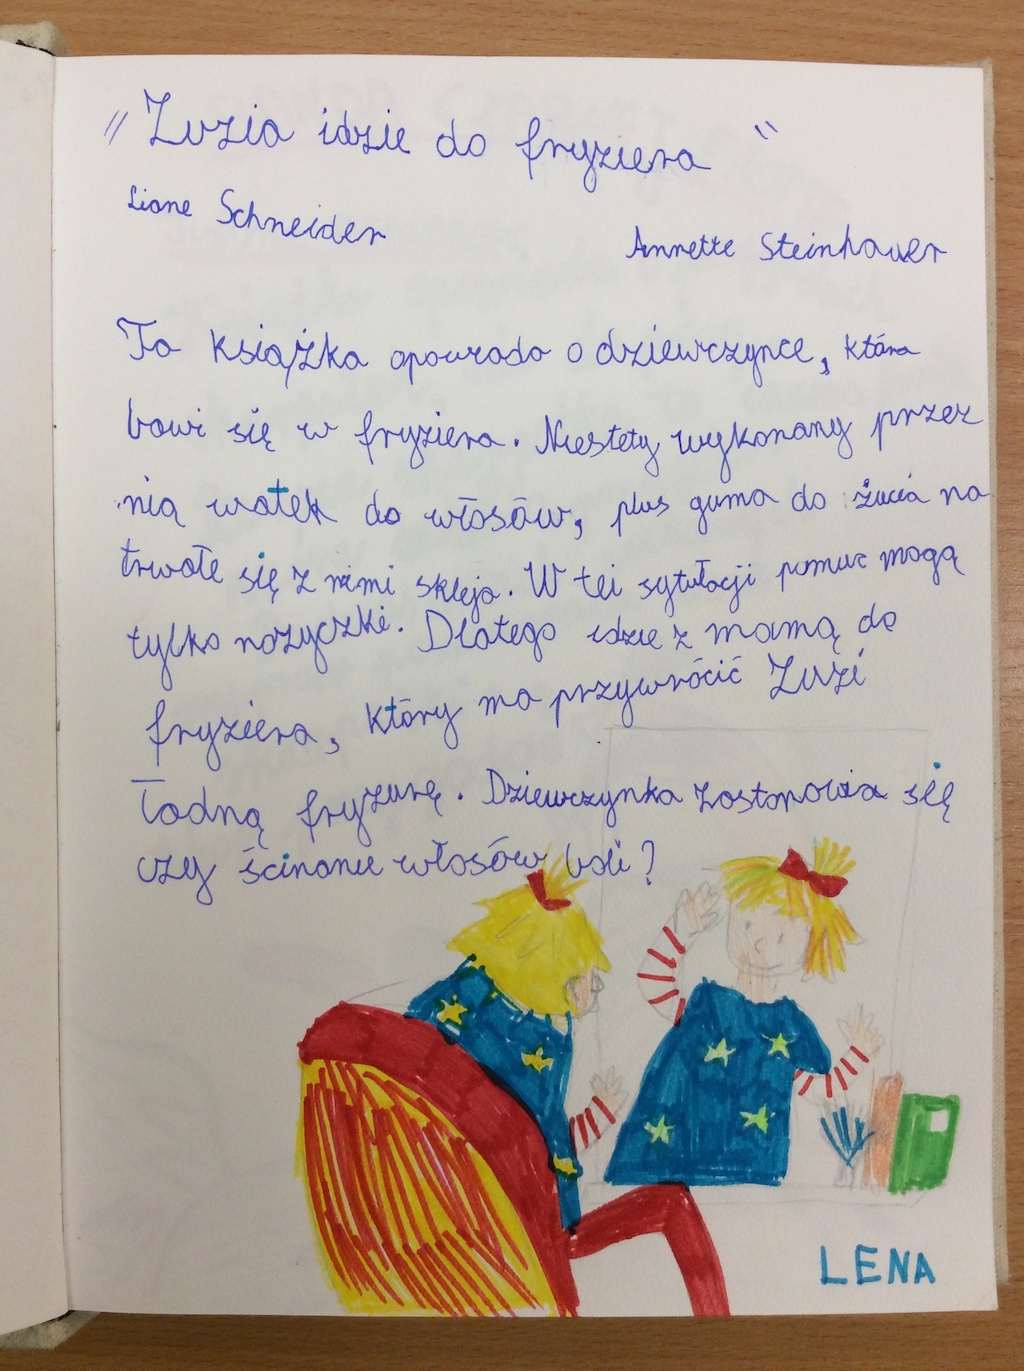 "Zuzia idzie do fryziera"
Liane Schneider
Annette Steinhauer
Ta książka opowiada o dziewczynce, która
bawi się w fryziera. Niestety wykonany przez
nią wałek do włosów, plus guma do żucia na
trwałe się z nimi skleja. W tei sytułacji pomuc mogą
tylko nożyczki. Dlatego idzie z mamą do
fryziera, który ma przywrócić Zuzi
ładną fryzurę. Dziewczynka zastanawia się
czy ścinanie włosów boli?
LENA